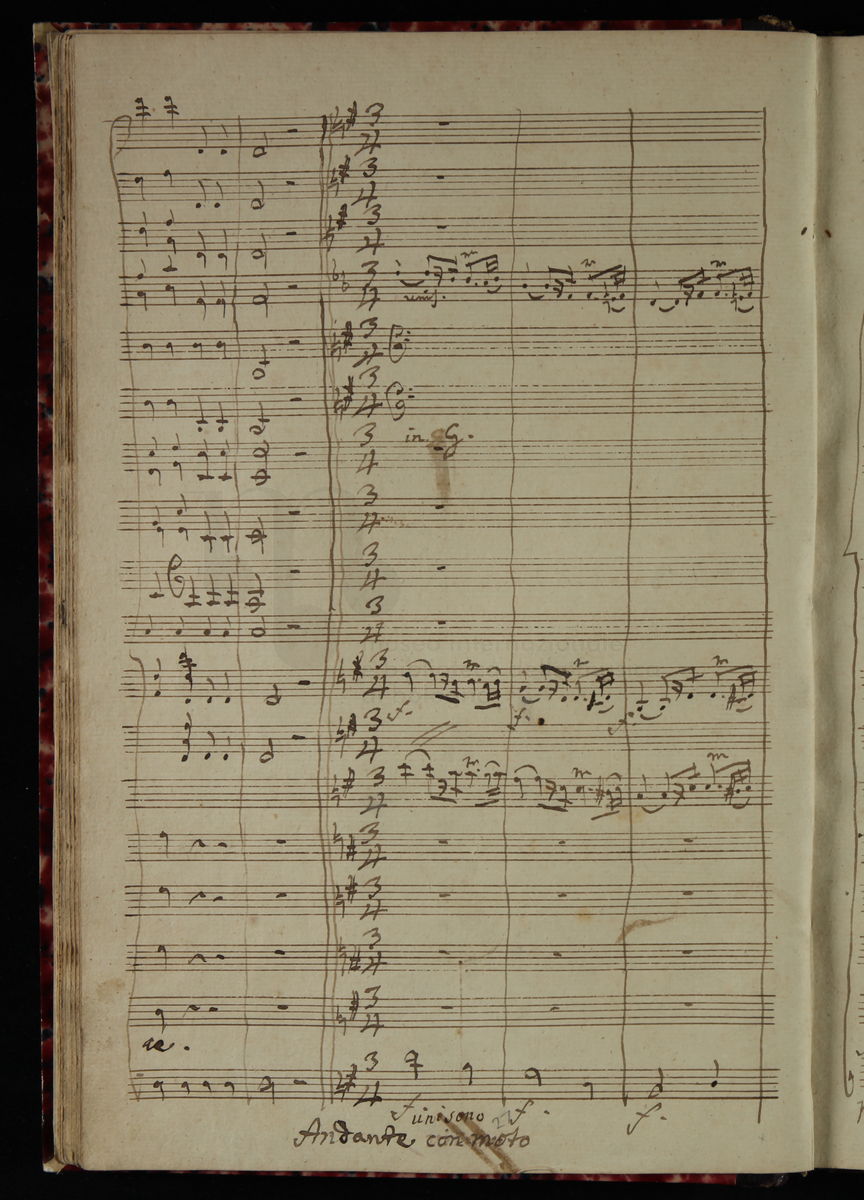 unis.
in G.
f.
f.
f.
ae.
f unisono f.
f.
Andante con moto